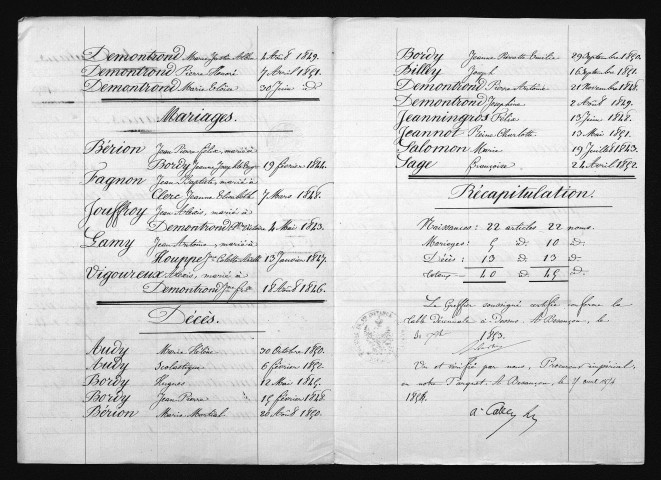 Demontrond Marie 4 Août 1849.
Demontrond Pierre Honoré 7 Avril 1851.
Demontrond Marie Eloïse 30 Juin d°
Mariages.
Bérion Jean Pierre Félix, marié à
Bordy Jeanne Josephte 19 février 1844.
Fagnon Jean Baptiste, marié à
Clerc Jeanne Elisabeth 7 Mars 1848.
Jouffroy Jean Alexis, marié à
Demontrond 4 Mai 1843.
Lamy Jean Antoine, marié à
Houppe Jne Colette 13 Janvier 1847.
Vigoureux Alexis, marié à
Demontrond Jne fse 18 Août 1846.
Décès.
Audy Marie Hélène 30 Octobre 1850.
Audy Scolastique 6 février 1850.
Bordy Hugues 12 Mai 1845.
Bordy Jean Pierre 15 février 1848.
Bérion Marie Martial 20 Août 1850.
Bordy Jeanne Pierrette Emilie 29 Septembre 1850.
Billey Joseph 16 Septembre 1851.
Demontrond Pierre Antoine 21 Novembre 1848.
Demontrond Josephine 2 Août 1849.
Jeanningros Félix 13 Juin 1848.
Jeannot Reine Charlotte 13 Mai 1851.
Salomon Marie 19 Juillet 1843.
Sage Françoise 24 Avril 1852.
Récapitulation.
Naissances: 22 articles 22 noms.
Mariages: 5 d° 10 d°
Décès: 13 d° 13 d°
Totaux 40 d° 45 d°
Le Greffier soussigné certifie conforme la
table décennale ci-dessus. A Besançon, le
1853.
Vu et vérifié par nous, Procureur impérial,
en notre Parquet. A Besançon, le 7 avril 1854
1854.